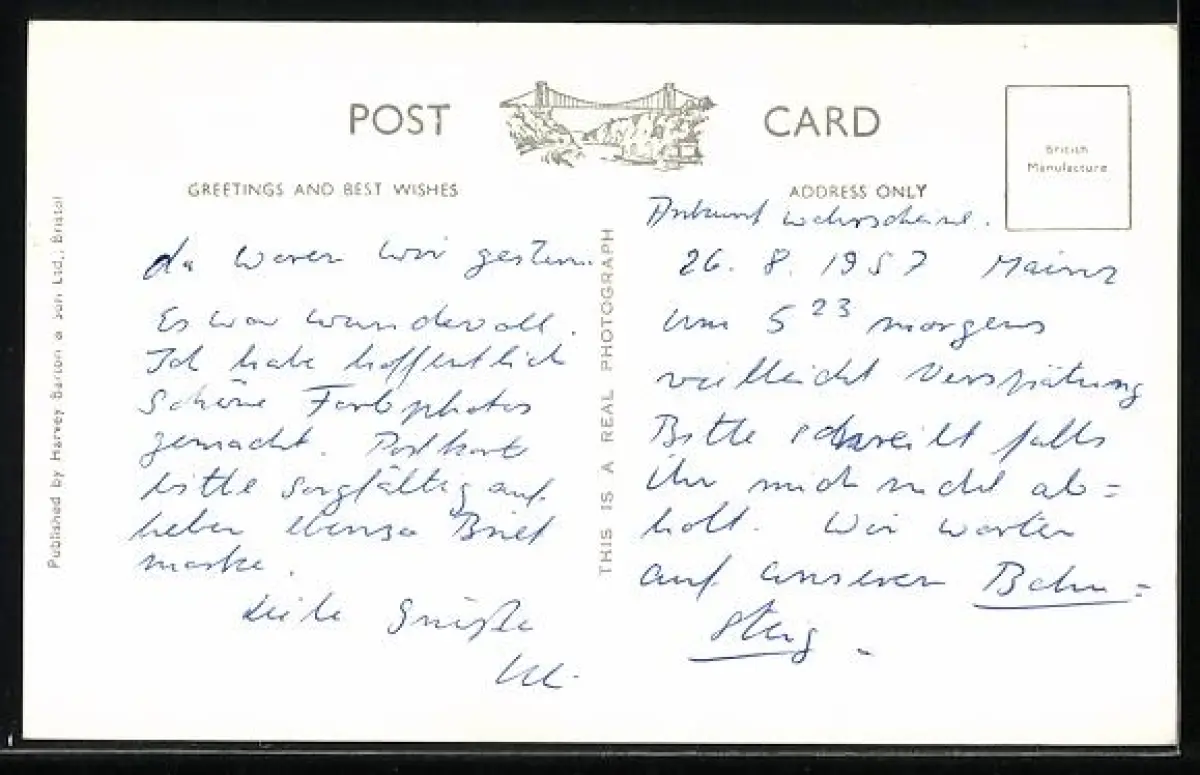 POST CARD
GREETINGS AND BEST WISHES
ADDRESS ONLY
British
Manufacture
Published by Harvey Barton & Son Ltd., Bristol
THIS IS A REAL PHOTOGRAPH
da waren wir gestern.
Es war wundervoll.
Ich habe hoffentlich
schöne Farbphotos
gemacht. Postkarte
bitte sorgfältig auf
heben ebenso Brief
marke.
Grüße
Ankunft wahrscheinl.
26. 8. 1957 Mainz
um 5 23 morgens
vielleicht Verspätung
Bitte schreibt falls
ihr mich nicht ab=
holt. Wir warten
auf unseren Bahn=
steig.